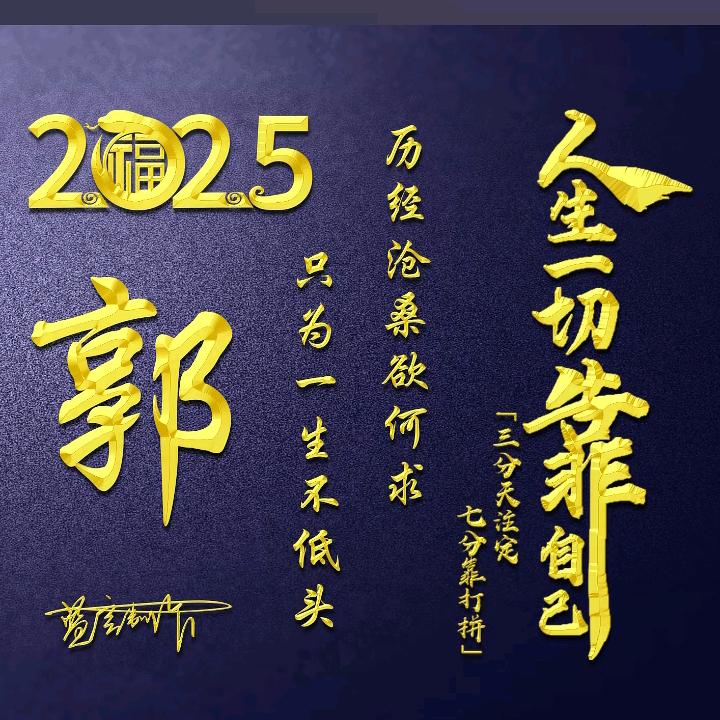 人生一切靠自己
「三分天注定
七分靠打拼」
历经沧桑欲何求
只为一生不低头
2025
福
郭